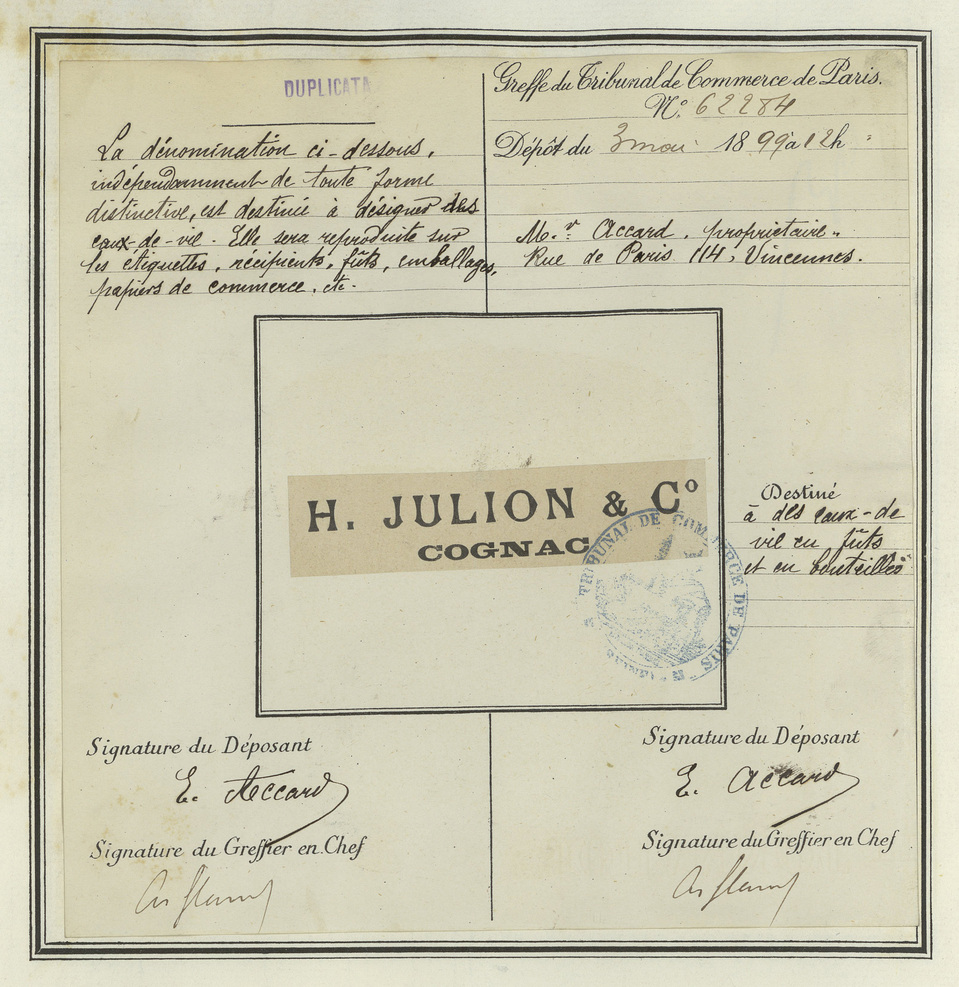 DUPLICATA
La dénomination ci-dessous,
indépendamment de toute forme
distinctive, est destinée à désigner des
eaux-de-vie. Elle sera reproduite sur
les étiquettes, récipients, fûts, emballages,
papiers de commerce, etc.
Greffe du Tribunal de Commerce de Paris.
No. 62284
Dépôt du 3 mai 1899 à 12h
M.r Accard, propriétaire,
Rue de Paris 114, Vincennes.
H. JULION & Co
COGNAC
TRIBUNAL DE COMMERCE DE PARIS
Destiné
à des eaux-de
vie en fûts
et en bouteilles
Signature du Déposant
E. Accard
Signature du Greffier en Chef
Signature du Déposant
E. Accard
Signature du Greffier en Chef